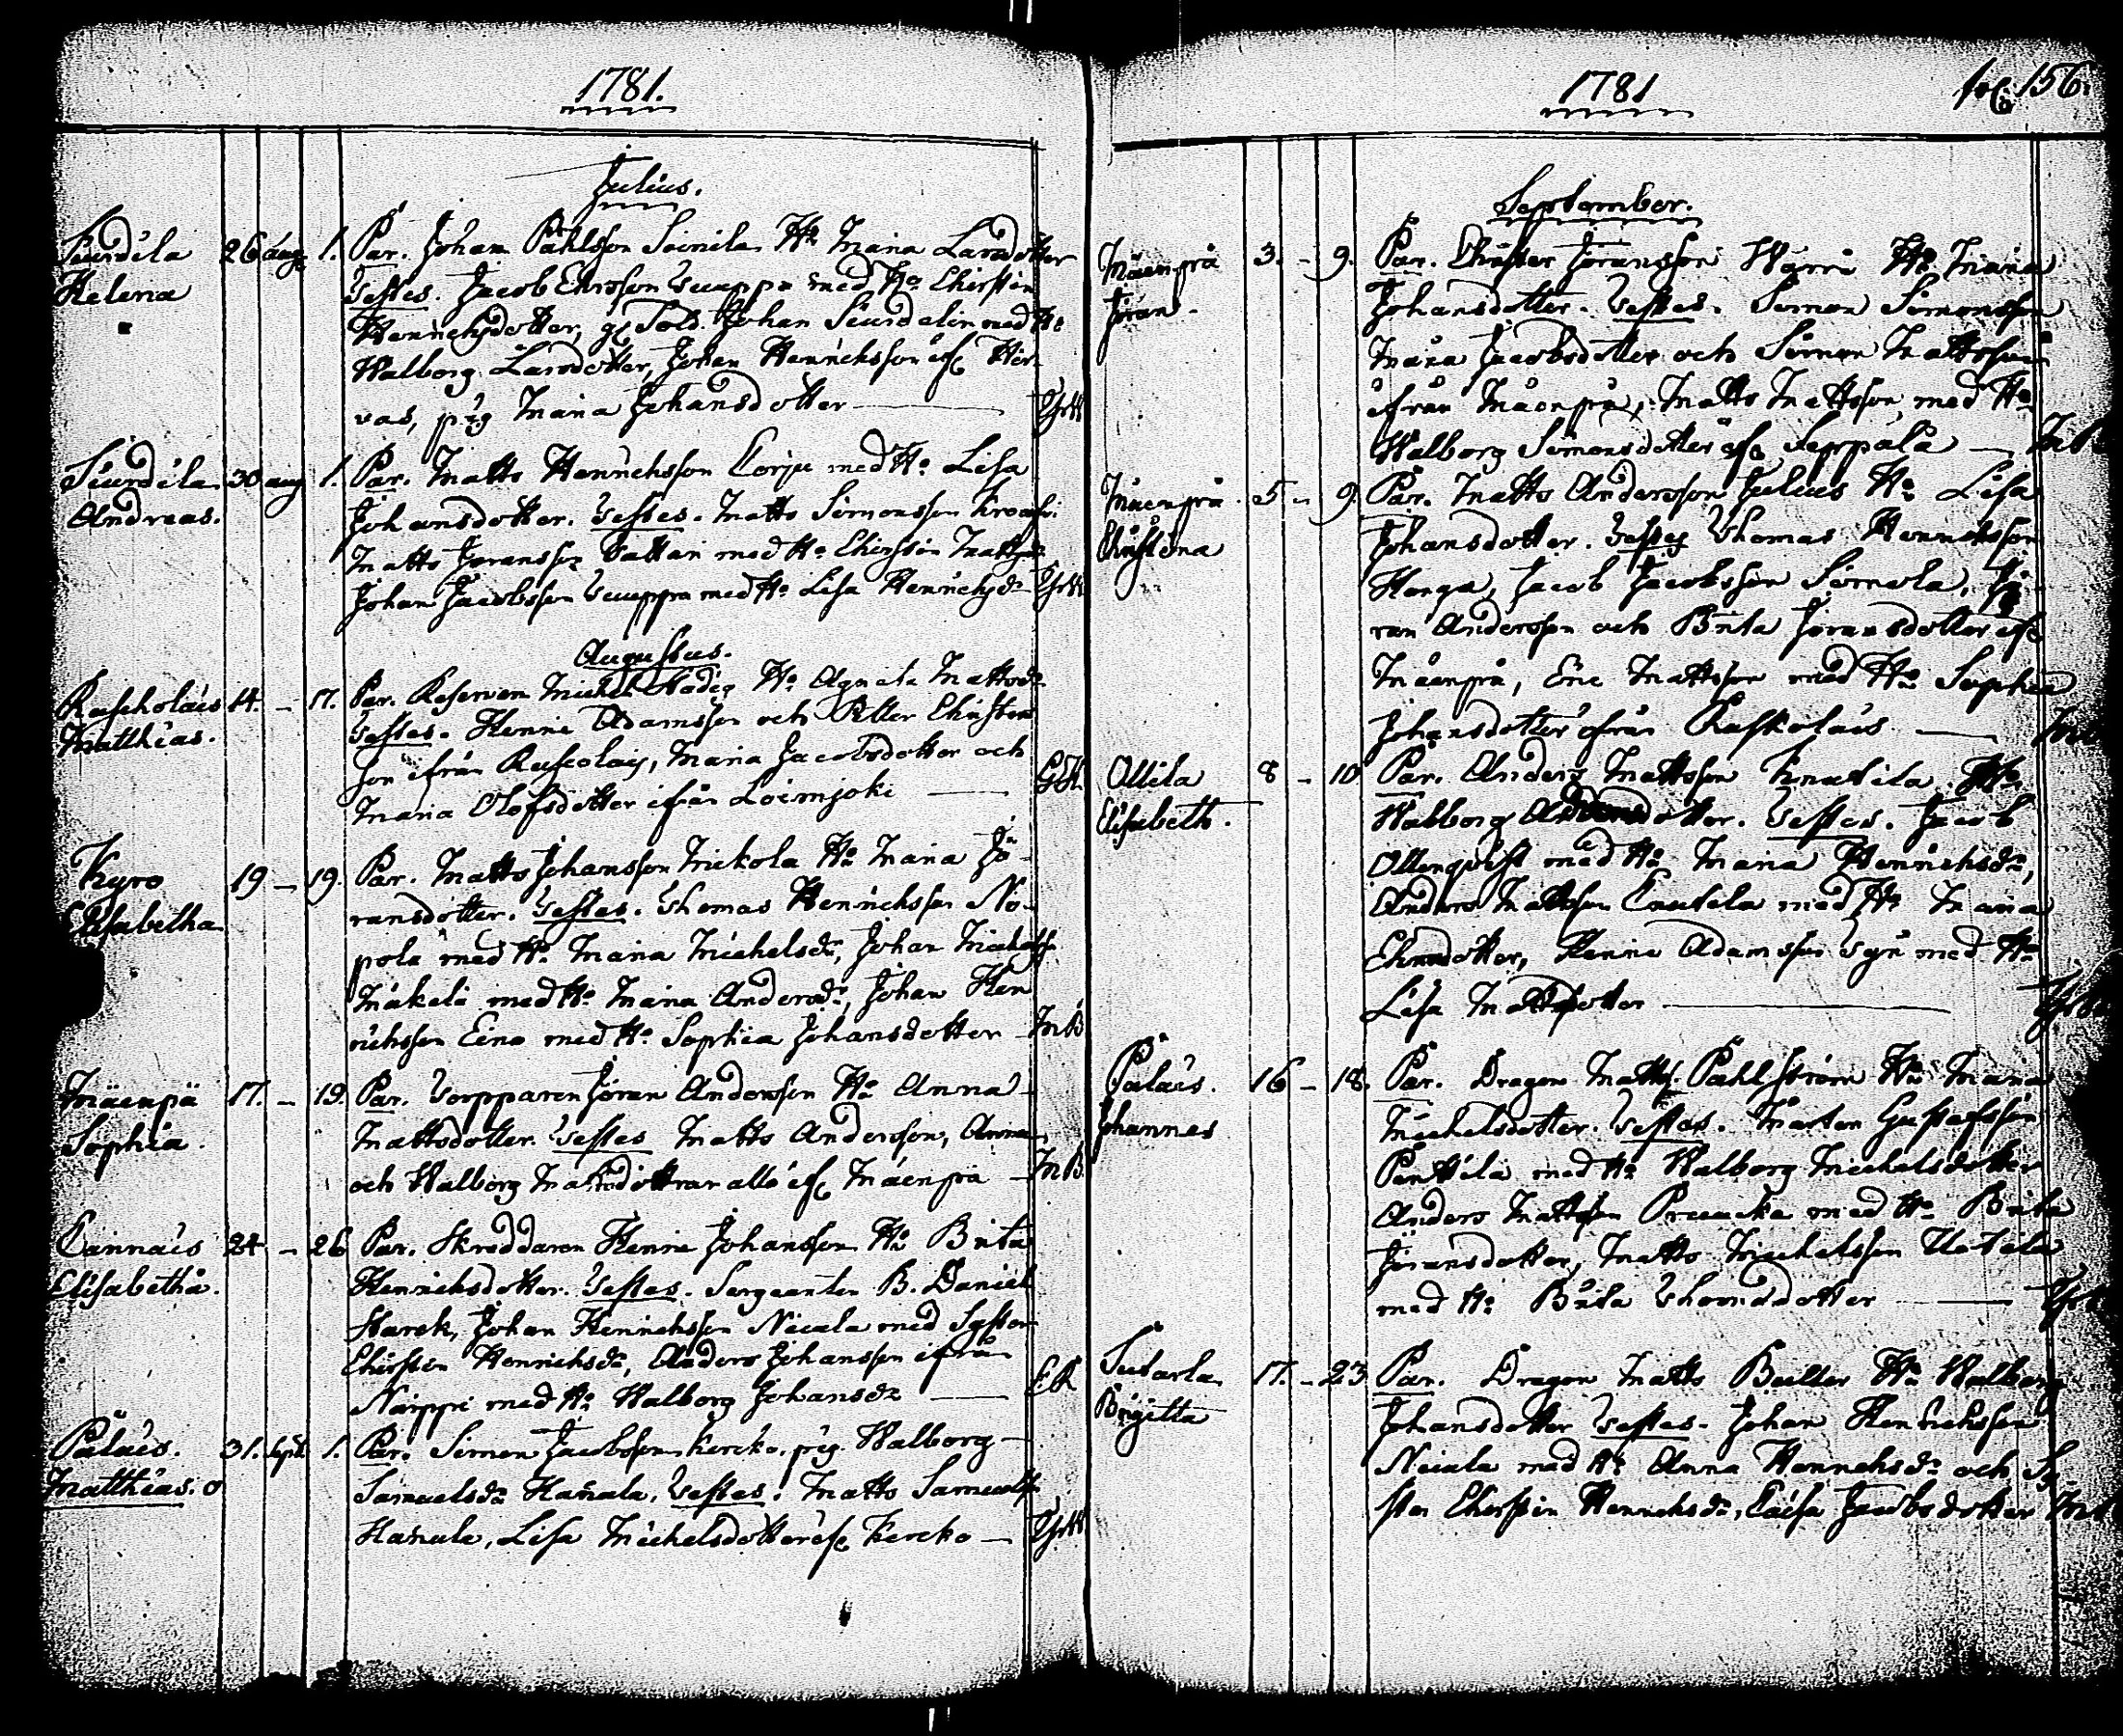 1781.
Julius.
Siurdila 26 aug 1. Par. Johan Påhlsson Soinila H:u Maria Larsdotter
Helena Testes. Jacob Ericsson Uuappa med H:o Chirstin
Henrichsdotter, gl. Sold. Johan Siurdelin med H:o
Walborg Larsdotter, Johan Henrichsson if: Hir-
vas, pig Maria Johansdotter
Siurdila 30 aug 1. Par. Matts Henrichsson Corju med H:o Lisa
Andreas. Johansdotter. Testes. Matts Simonsson
Matts Göransson Vattari med H:o Chirstin Mattsd:r
Johan Jacobsson Uuappa med H:o Lisa Henrichsd:r
Augustus.
Ruskolais 14. – 17. Par. Reserven Michel Stadig H:u Agneta Mattsd:r
Matthias. Testes. Henric Adamsson och Petter Christers
son ifrån Ruscolais, Maria Jacobsdotter och
Maria Olofsdotter ifrån Loimjoki
Kyro 19 – 19. Par. Matts Johansson Mickola H:u Maria Jö-
Elisabetha ransdotter. Testes. Thomas Henrichsson No-
pola med H:u Maria Michelsd:r, Johan Michelss:
Mäkelä med H:o Maria Andersd:r, Johan Hen
richsson Eino med H:o Sophia Johansdotter MB
Mäenpä 17. – 19. Par. Torpparen Jöran Andersson H:u Anna
Sophia. Mattsdotter. Testes Matts Andersson, Anna
och Walborg Mattsdottrar alle if: Mäenpä MB.
Cannais 24 – 26 Par. Skreddaren Henric Johansson H:u Brita
Elisabetha. Henrichsdotter. Testes. Sergeanten B. Daniel
Starck, Johan Henrichsson Nicula med Syster
Chirstin Henrichsd:r, Anders Johansson ifrån
Närppi med H:u Walborg Johansd:r
Pälais. 31. Sept. 1. Par. Simon Jacobsson Kercko. pig. Walborg
Matthias. Samuelsd:r Hanula, Testes. Matts Samuelss:
Hanula, Lisa Michelsdotter if: Kercko
1781 fol. 156.
September.
Mäenpä 3. – 9. Par. Christer Jöransson Wärri H:u Maria
Jöran. Johansdotter. Testes. Simon Simonsson
Maria Jacobsdotter och Simon Mattsson
ifrån Mäenpä, Matts Mattsson med H:o
Walborg Simonsdotter if: Seppälä
Mäenpä 5 – 9. Par. Matts Andersson Julius H:u Lisa
Christina Johansdotter. Testes Thomas Henrichsson
Honga, Jacob Jacobsson Simola, Jö-
ran Andersson och Brita Jöransdotter if:
Mäenpä, Eric Mattsson med H:o Sophia
Johansdotter ifrån Ruskolais
Ollila 8 – 10 Par. Anders Mattsson Knutila H:u
Elisabeth. Walborg dotter. Testes. Jacob
Ollenqvist med H:u Maria Henrichsd:r,
Anders Mattsson Cnutila med H:o Maria
dotter, Henric Adamsson Syri med H:u
Lisa Mattsdotter
Pälais. 16 – 18. Par. Dragon Matts Påhlström H:u Maria
Johannes Michelsdotter. Testes. Mårten Gustafsson
Penttilä med H:o Walborg Michelsdotter
Anders Mattsson Pruucka med H:o Brita
Jöransdotter, Matts Michelsson Uotila
med H:o Brita Thomædotter
Sutarla 17. – 23 Par. Dragon Matts Buller H:u Walborg
Brigitta Johansdotter Testes. Johan Henrichsson
Nicula med H:o Anna Henrichsd:r och Sy
ster Chirstin Henrichsd:r, Caisa Jacobsdotter